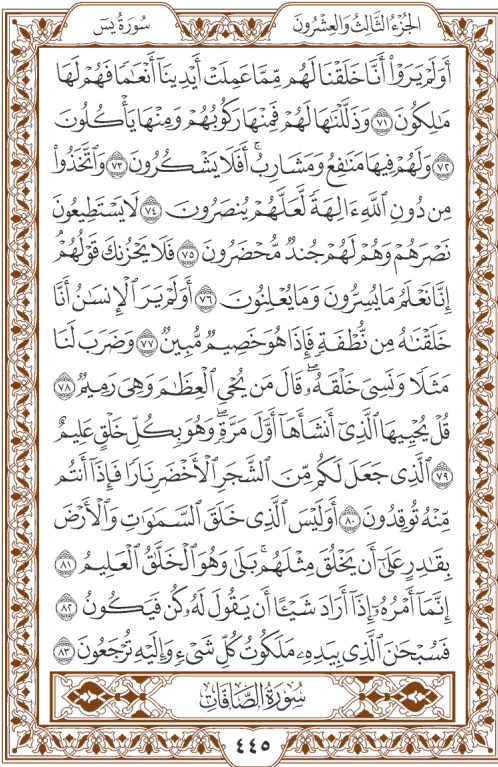 الجزء الثالث والعشرون
سورة يس
أَوَلَمْ يَرَوْا۟ أَنَّا خَلَقْنَا لَهُم مِّمَّا عَمِلَتْ أَيْدِينَآ أَنْعَٰمًا فَهُمْ لَهَا
مَٰلِكُونَ ٧١ وَذَلَّلْنَٰهَا لَهُمْ فَمِنْهَا رَكُوبُهُمْ وَمِنْهَا يَأْكُلُونَ
٧٢ وَلَهُمْ فِيهَا مَنَٰفِعُ وَمَشَارِبُ ۖ أَفَلَا يَشْكُرُونَ ٧٣ وَٱتَّخَذُوا۟
مِن دُونِ ٱللَّهِ ءَالِهَةً لَّعَلَّهُمْ يُنصَرُونَ ٧٤ لَا يَسْتَطِيعُونَ
نَصْرَهُمْ وَهُمْ لَهُمْ جُندٌ مُّحْضَرُونَ ٧٥ فَلَا يَحْزُنكَ قَوْلُهُمْ ۘ
إِنَّا نَعْلَمُ مَا يُسِرُّونَ وَمَا يُعْلِنُونَ ٧٦ أَوَلَمْ يَرَ ٱلْإِنسَٰنُ أَنَّا
خَلَقْنَٰهُ مِن نُّطْفَةٍ فَإِذَا هُوَ خَصِيمٌ مُّبِينٌ ٧٧ وَضَرَبَ لَنَا
مَثَلًا وَنَسِىَ خَلْقَهُۥ ۖ قَالَ مَن يُحْىِ ٱلْعِظَٰمَ وَهِىَ رَمِيمٌ ٧٨
قُلْ يُحْيِيهَا ٱلَّذِىٓ أَنشَأَهَآ أَوَّلَ مَرَّةٍ ۖ وَهُوَ بِكُلِّ خَلْقٍ عَلِيمٌ
٧٩ ٱلَّذِى جَعَلَ لَكُم مِّنَ ٱلشَّجَرِ ٱلْأَخْضَرِ نَارًا فَإِذَآ أَنتُم
مِّنْهُ تُوقِدُونَ ٨٠ أَوَلَيْسَ ٱلَّذِى خَلَقَ ٱلسَّمَٰوَٰتِ وَٱلْأَرْضَ
بِقَٰدِرٍ عَلَىٰٓ أَن يَخْلُقَ مِثْلَهُم ۚ بَلَىٰ وَهُوَ ٱلْخَلَّٰقُ ٱلْعَلِيمُ ٨١
إِنَّمَآ أَمْرُهُۥٓ إِذَآ أَرَادَ شَيْـًٔا أَن يَقُولَ لَهُۥ كُن فَيَكُونُ ٨٢
فَسُبْحَٰنَ ٱلَّذِى بِيَدِهِۦ مَلَكُوتُ كُلِّ شَىْءٍ وَإِلَيْهِ تُرْجَعُونَ ٨٣
سُورَةُ الصَّافَّاتِ
٤٤٥